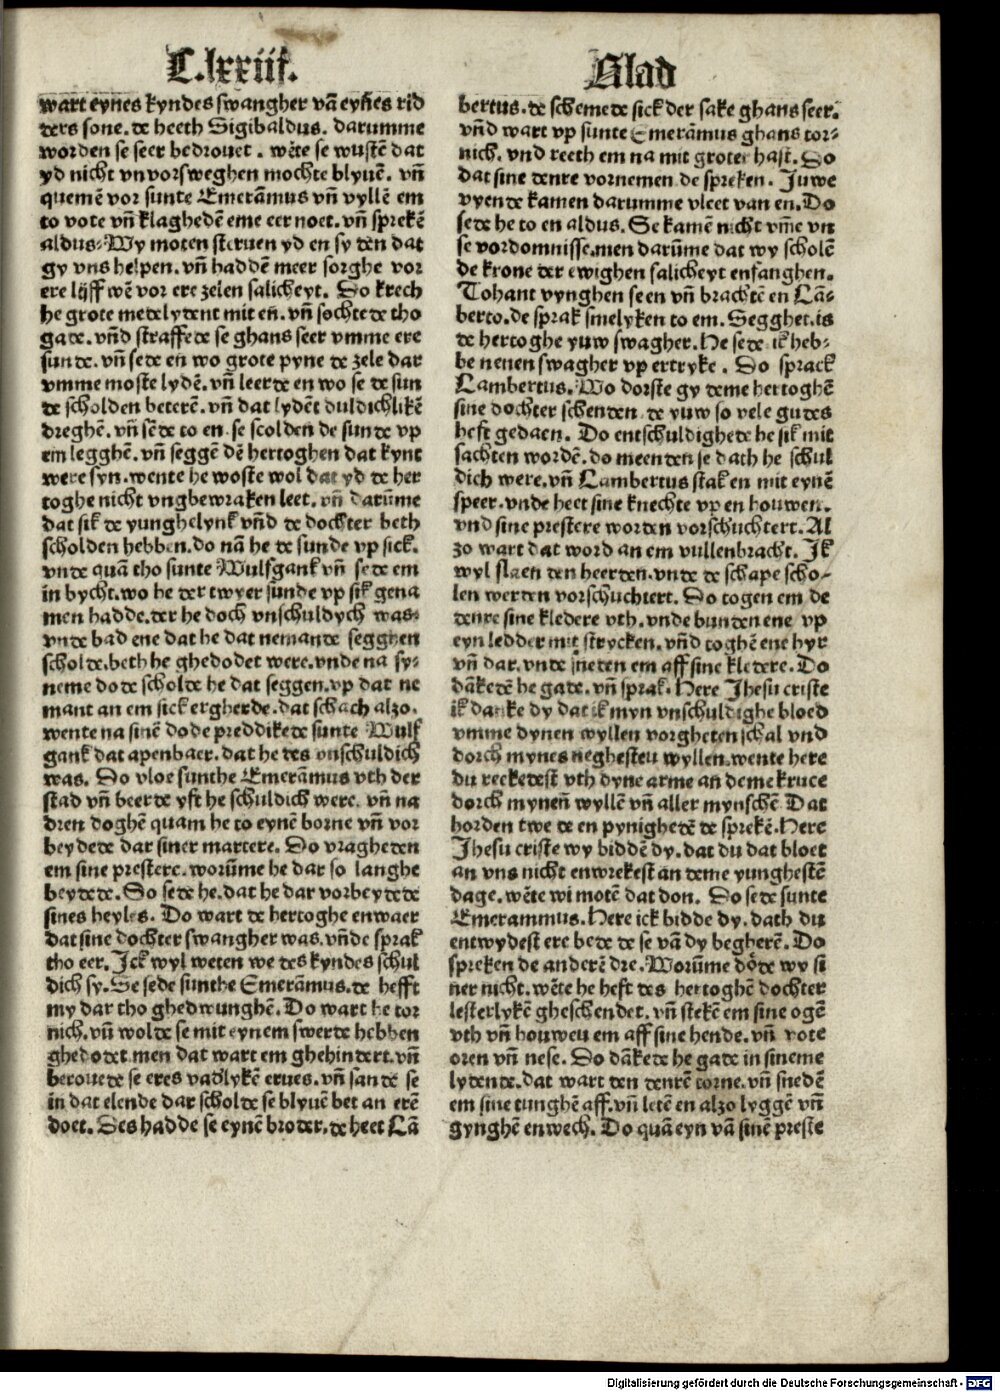 C.lxxiii.
Blad
wart eynes kyndes swangher vā eyn̄es rid
ders sone. de heeth Sigibaldus. darumme
worden se seer bedrouet. wēte se wustē dat
yd nicht vnvorsweghen mochte blyuē. vn̄
quemē vor sunte Emerāmus vn̄ vyllē em
to vote vn̄ klaghedē eme eer noet. vn̄ sprekē
aldus. Wy moten steruen yd en sy den dat
gy vns helpen. vn̄ haddē meer sorghe vor
ere lijff wē vor ere zelen salicheyt. So krech
he grote medelydent mit en̄. vn̄ sochte de tho
gade. vn̄d straffede se ghans seer vmme ere
sunde. vn̄ sede en wo grote pyne de zele dar
vmme moste lydē. vn̄ leerde en wo se de sun
de scholden beterē. vn̄ dat lydēt duldichlikē
dreghē. vn̄ sēde to en. se scolden de sunde vp
em legghē. vn̄ seggē dē hertoghen dat kynt
were syn. wente he woste wol dat yd de her
toghe nicht vngbewraken leet. vn̄ darūme
dat sik de yunghelynk vn̄d de dochter beth
scholden hebben. do nā he de sunde vp sick.
vnde quā tho sunte Wulfgank vn̄ sede em
in bycht. wo he der twyer sunde vp sik gena
men hadde. der he doch vnschuldych was.
vnde bad ene dat he dat nemande segghen
scholde. beth he ghedodet were. vnde na sy-
neme dode scholde he dat seggen. vp dat ne
mant an em sick ergherde. dat schach alzo.
wente na sinē dode preddikede sunte Wulf
gank dat apenbaer. dat he des vnschuldich
was. Do vloe sunthe Emerāmus vth der
stad vn̄ beerde yft he schuldich were. vn̄ na
dren doghē quam he to eynē borne vn̄ vor
beydede dar siner martere. Do vragheden
em sine prestere. worūme he dar so langhe
beydede. So sede he. dat he dar vorbeydede
sines heyles. Do wart de hertoghe enwaer
dat sine dochter swangher was. vn̄de sprak
tho eer. Ick wyl weten we des kyndes schul
dich sy. Se sede sunthe Emerāmus. de hefft
my dar tho ghedwunghē. Do wart he tor
nich. vn̄ wolde se mit eynem swerde hebben
ghedodet. men dat wart em ghehindert. vn̄
berouede se eres vadlykē erues. vn̄ sande se
in dat elende dar scholde se blyuē bet an erē
doet. Des hadde se eynē broder. de heet Lā
bertus. de schemede sick der sake ghans seer.
vn̄d wart vp sunte Emerāmus ghans tor-
nich. vnd reeth em na mit groter hast. Do
dat sine denre vornemen de spreken. Juwe
vyende kamen darumme vleet van en. Do
sede he to en aldus. Se kamē nicht vm̄e vn
se vordomnisse. men darūme dat wy scholē
de krone der ewighen salicheyt enfanghen.
Tohant vynghen se en vn̄ brachtē en Lā-
berto. de sprak smelyken to em. Segghet. is
de hertoghe yuw swagher. He sede ik heb-
be nenen swagher vp ertryke. Do sprack
Lambertus. Wo dorste gy deme hertoghē
sine dochter schenden de yuw so vele gudes
heft gedaen. Do entschuldighede he sik mit
sachten wordē. do meenden se dath he schul
dich were. vn̄ Lambertus stak en mit eynē
speer. vnde heet sine knechte vp en houwen.
vnd sine prestere worden vorschuchtert. Al
zo wart dat word an em vullenbracht. Ik
wyl slaen den heerden. vnde de schape scho-
len werden vorschuchtert. Do togen em de
denre sine kledere vth. vnde bunden ene vp
eyn ledder mit strycken. vn̄d toghē ene hyr
vn̄ dar. vnde sneten em aff sine kledere. Do
dākedē he gade. vn̄ sprak. Here Jhesu criste
ik danke dy dat ik myn vnschuldighe bloed
vmme dynen wyllen vorgheten schal vnd
dorch mynes neghesteu wyllen. wente here
du reckedest vth dyne arme an deme kruce
dorch mynen̄ wyllē vn̄ aller mynschē Dat
horden twe de en pynighedē de sprekē. Here
Jhesu criste wy biddē dy. dat du dat bloet
an vns nicht enwrekest an deme yunghestē
dage. wēte wi motē dat don. Do sede sunte
Emerammus. Here ick bidde dy. dath du
entwydest ere bede de se vā dy begherē. Do
spreken de anderē dre. Worūme dōde wy si
ner nicht. wēte he heft des hertoghē dochter
lesterlykē gheschendet. vn̄ stekē em sine ogē
vth vn̄ houweu em aff sine hende. vn̄ vote
oren vn̄ nese. Do dākede he gade in sineme
lydende. dat wart den denrē torne. vn̄ snedē
em sine tunghē aff. vn̄ letē en alzo lyggē vn̄
gynghē enwech. Do quā eyn vā sinē preste
Digitalisierung gefördert durch die Deutsche Forschungsgemeinschaft - DFG